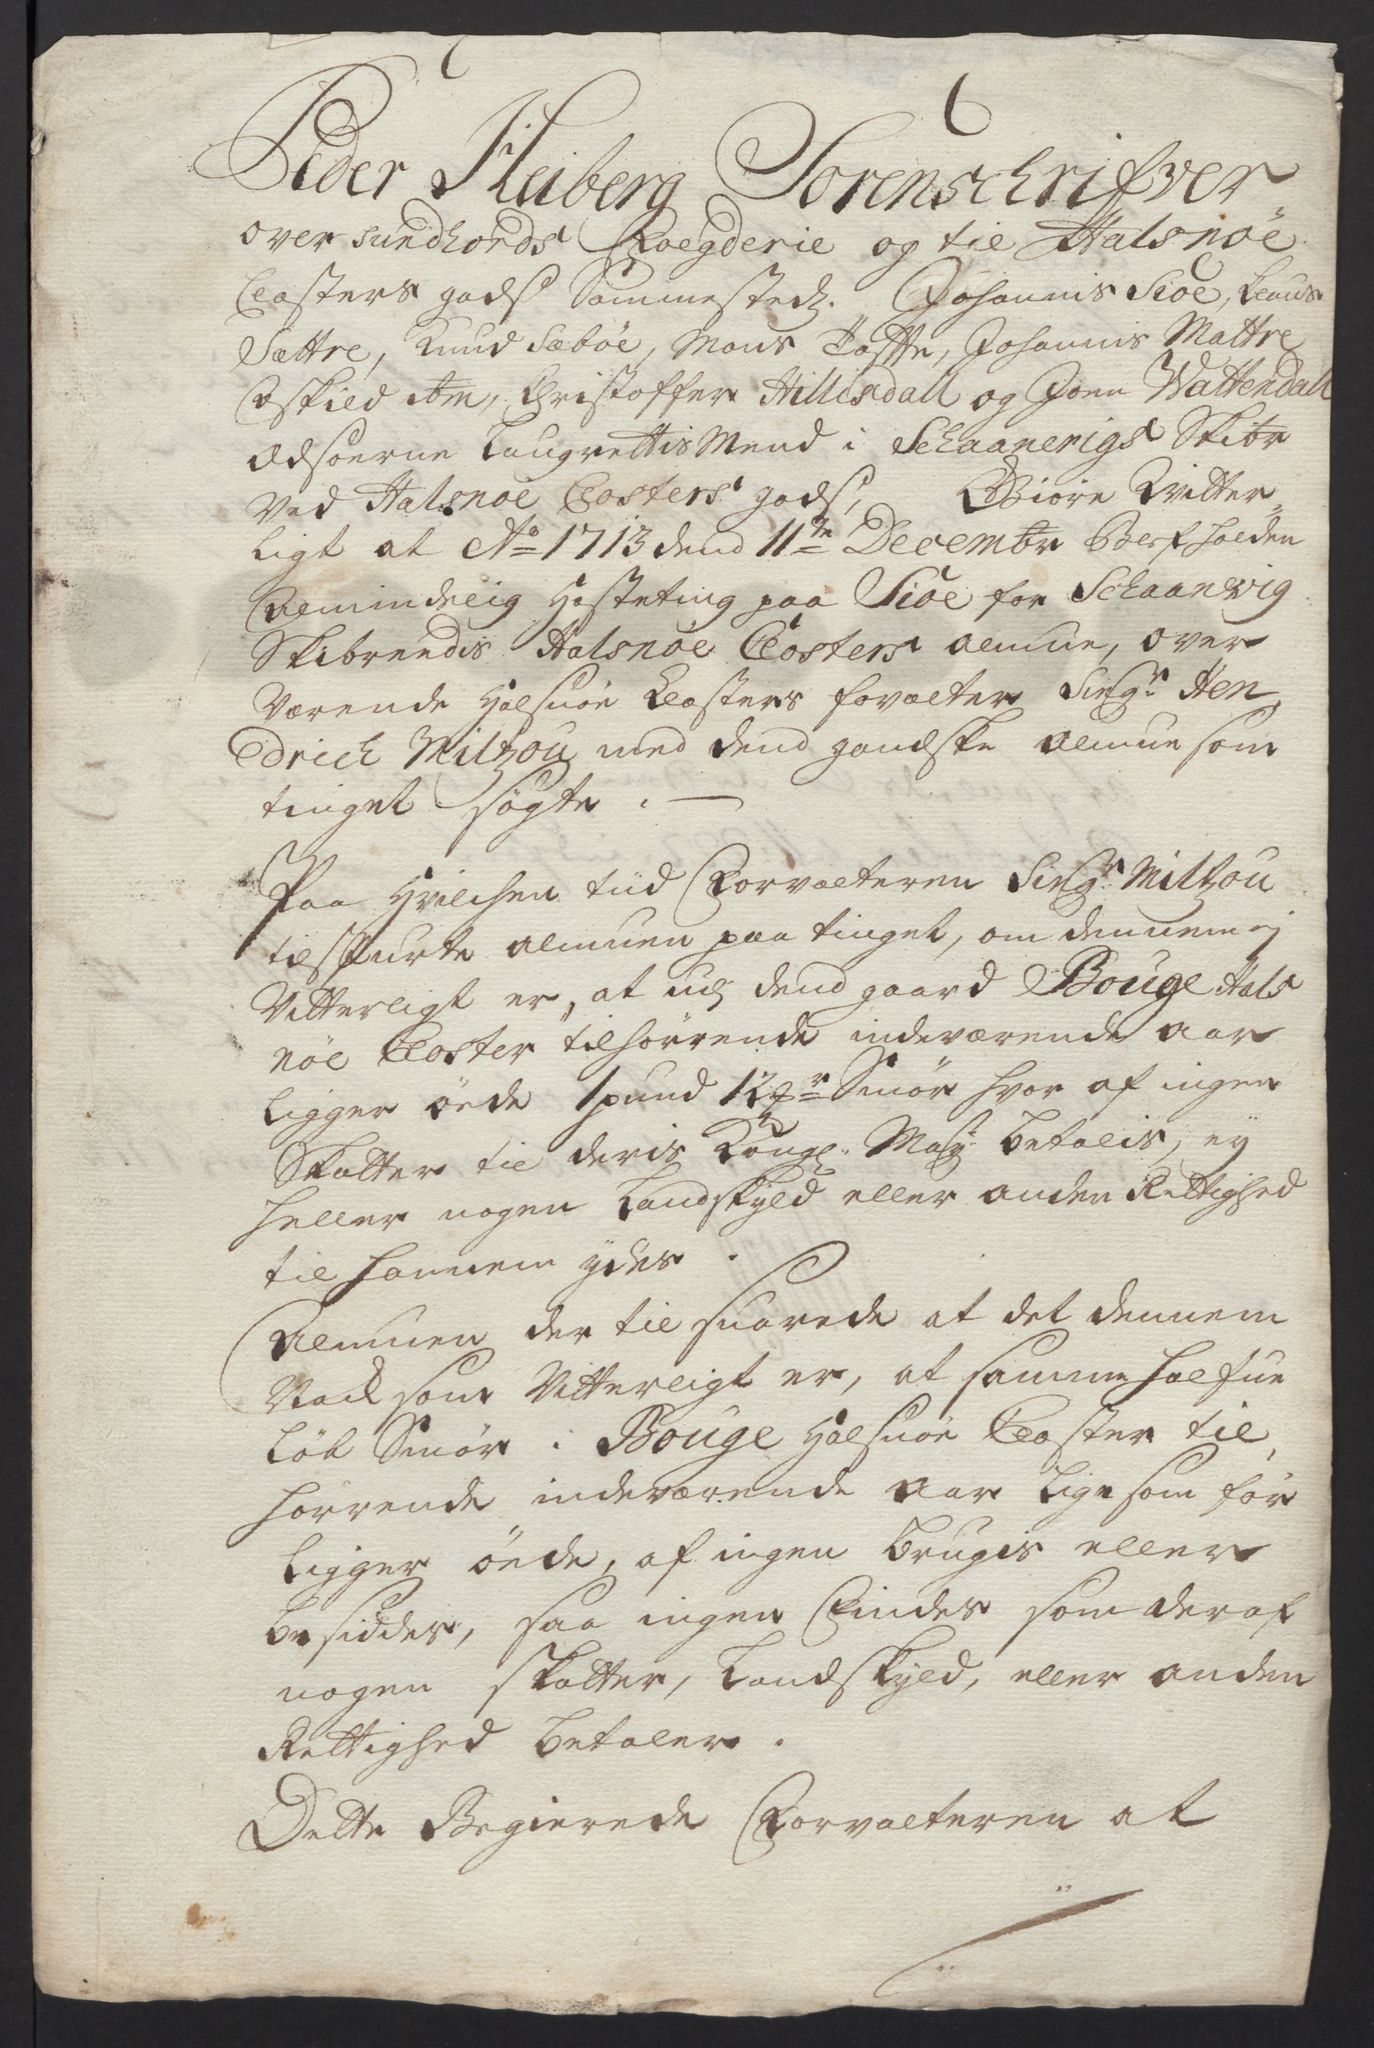 Peder Heiberg Sorenschrifver
over sundhords Foegderie og til Halsnöe
Closters godsß Sammestedz. Johannis Siöe, Claus
Sættre, Knud Sæböe, Mons Tofte, Johannis Mattre
Eskild Am, Christoffer Hillesdall og Joen Wattendall
Edsoerne LaugrettisMend i Schaanevigs Skibr
Ved Halsnöe Closters godsß, Giöre Vitter-
ligt at Ao 1713 dend 11te Decembr Blef holden
Almindelig Hösteting paa Siöe for Schaanevig
Skibreedis Halsnöe Closters almue, over
Værende Halsnöe Closters forvalter Sigr Hen
drich Miltzou med dend gandske almue som
tinget sögte.
Paa Hvilchen tiid Forvalteren Sigr Miltzou
tilspurte almuen paa tinget, om dennem ej
Vitterligt er, at udj dend gaard Bouge Hals
nöe Closter tilhörrende indeværende aar
ligger öede 1 pund 12 mr Smör hvor af ingen
Skatter til deris Kongl. Mayt betalis, ey
heller nogen Landskyld eller anden Rettighed
til hannem ydes.
Almuen der til suarede at det dennem
Nock som Vitterligt er, at samme halfue
Löb Smör i Bouge Halsnöe Closter til
hörrende indeværende aar lige som för
ligger öede, af ingen brugis eller
besiddes, saa ingen findes som deraf
nogen skatter, Landskyld, eller anden
Rettighed betaler.
Dette Begierede Forvalteren at